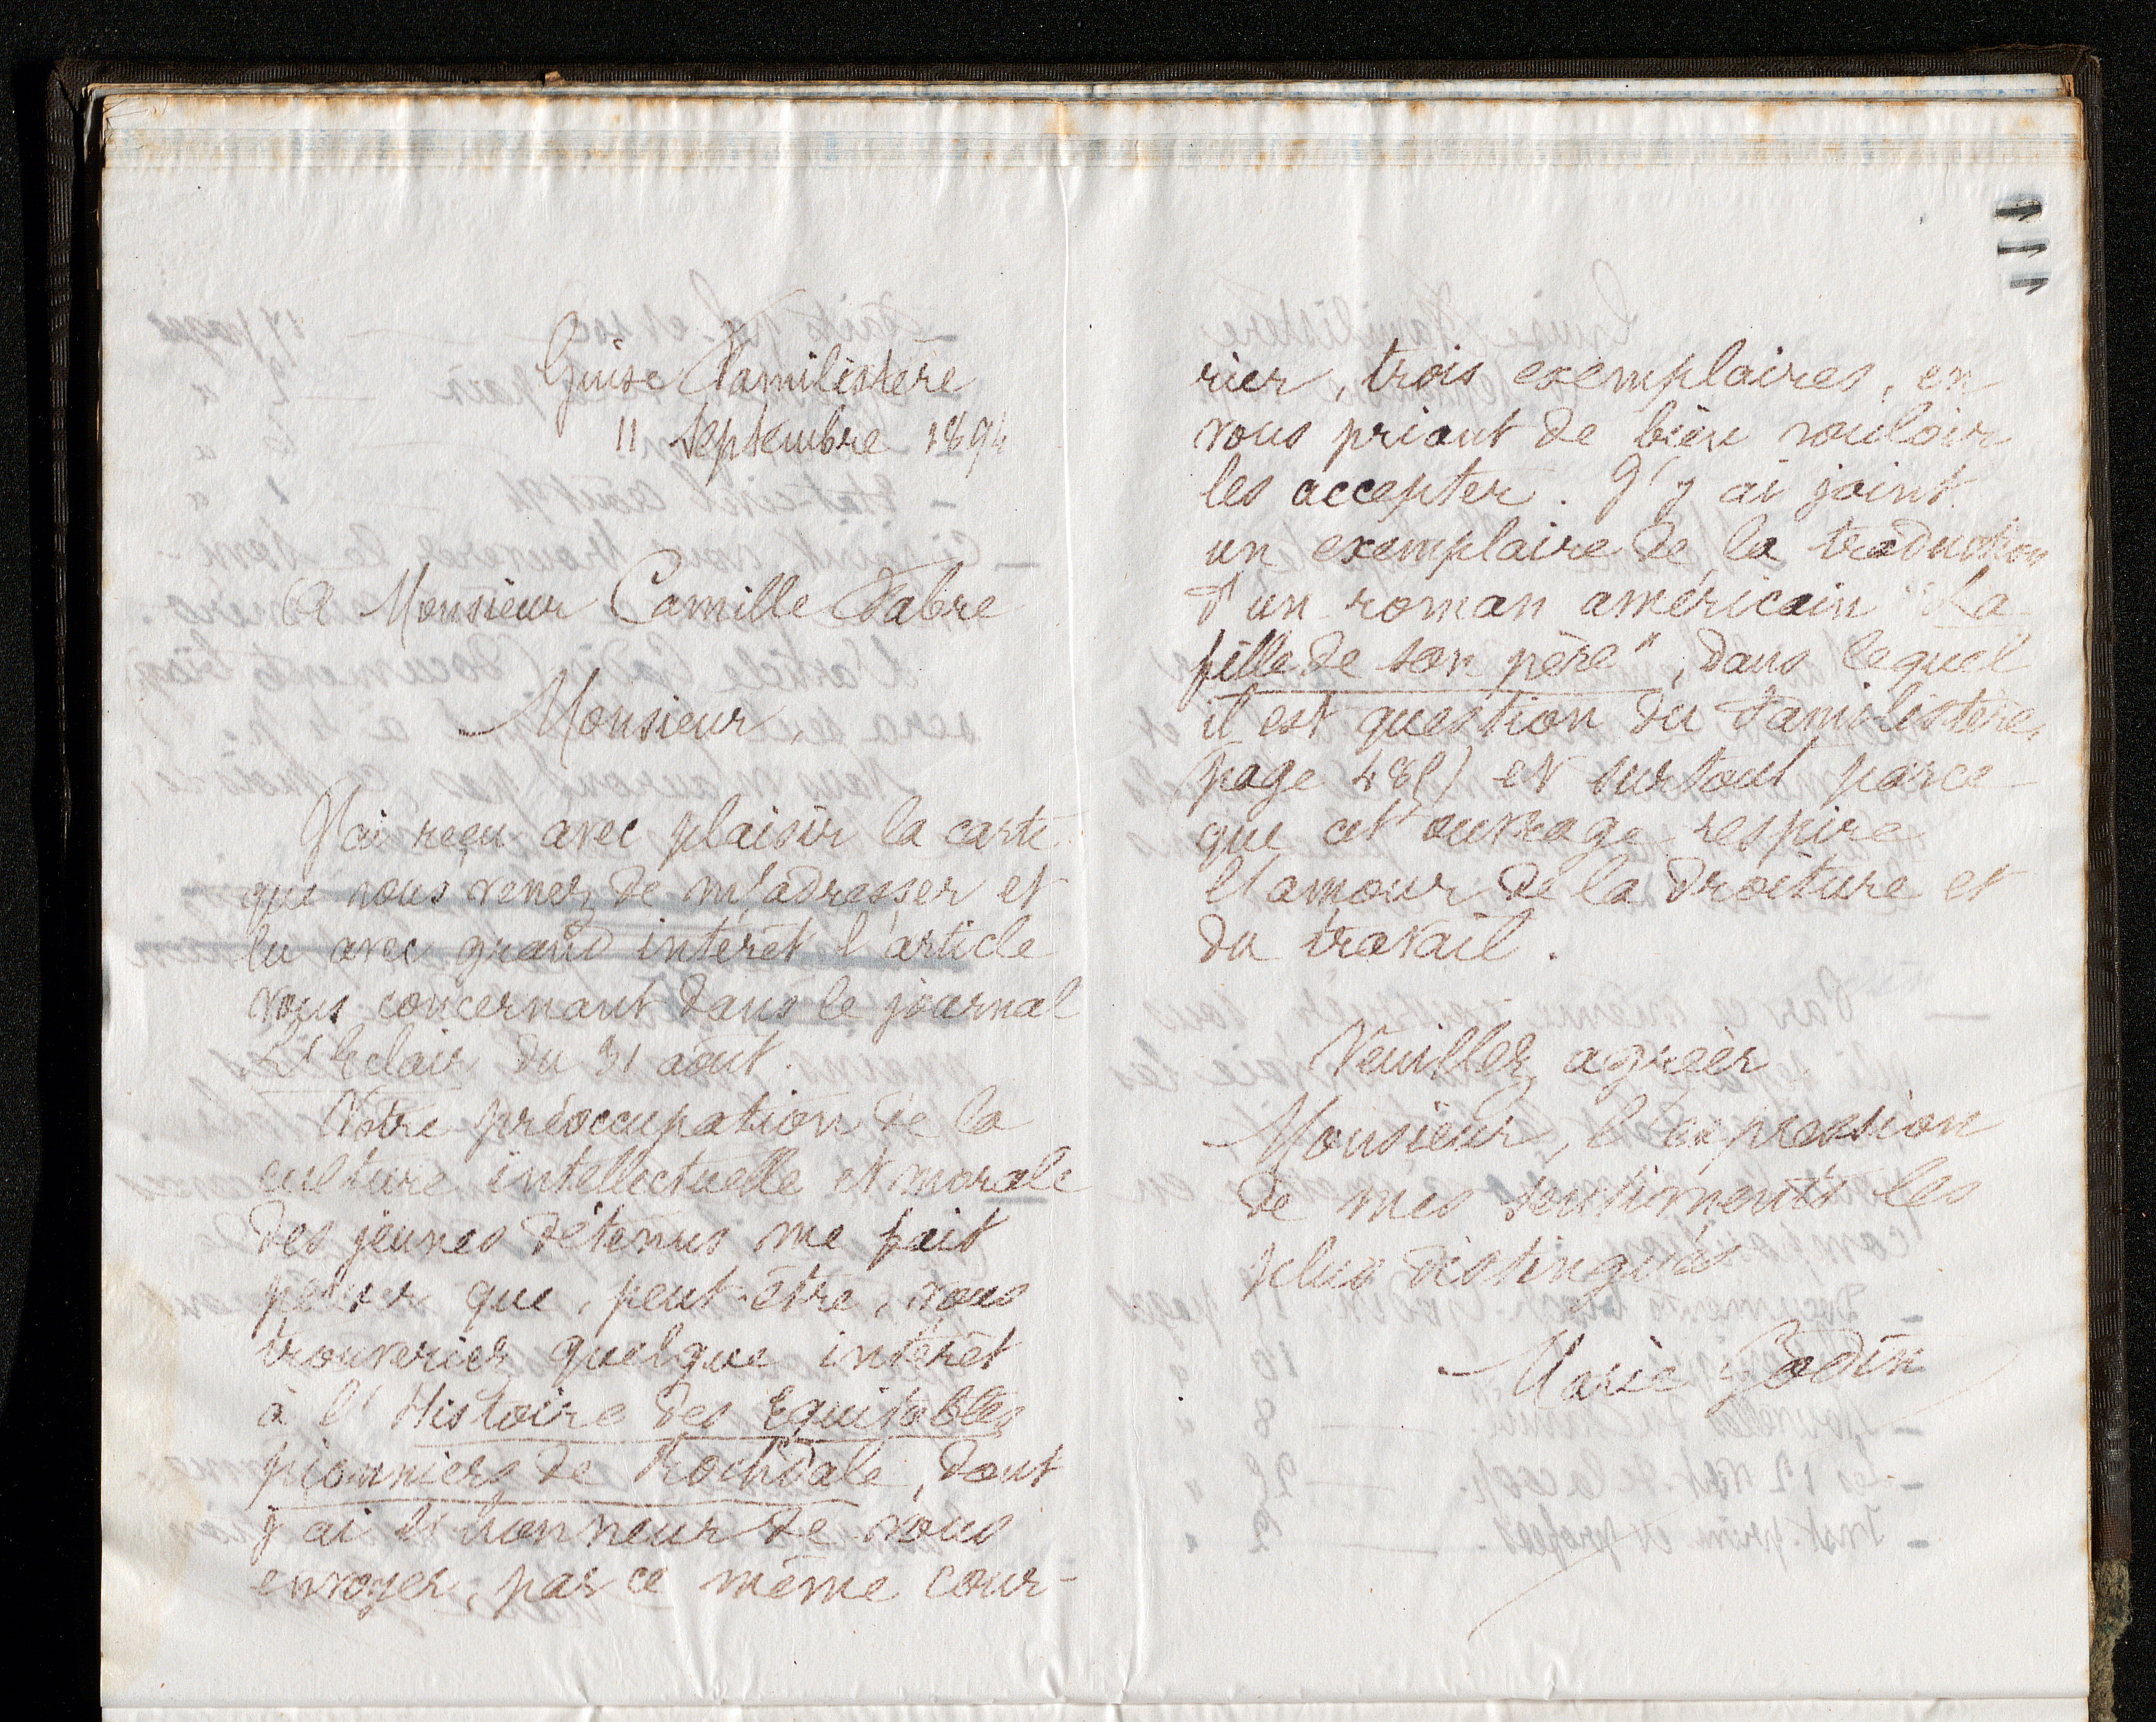 Guise Familistère
11 septembre 1894
A Monsieur Camille Fabre
Monsieur,
J'ai reçu avec plaisir la carte
que vous venez de m'adresser et
lu avec grand intérêt l'article
vous concernant dans le journal
L'Eclair du 31 août.
Votre préoccupation de la
culture intellectuelle et morale
des jeunes détenus me fait
penser que, peut-être, vous
trouveriez quelque intérêt
à l'Histoire des Equitables
pionniers de Rochdale, dont
j'ai l'honneur de vous
envoyer, par ce même cour-
rier, trois exemplaires, en
vous priant de bien vouloir
les accepter. J'y ai joint
un exemplaire de la traduction
d'un roman américain "La
fille de son père", dans lequel
il est question du Familistère,
page 489) et surtout parce
que cet ouvrage respire
l'amour de la droiture et
du travail.
Veuillez agréer
Monsieur, l'expression
de mes sentiments les
plus distingués
Marie Godin
111